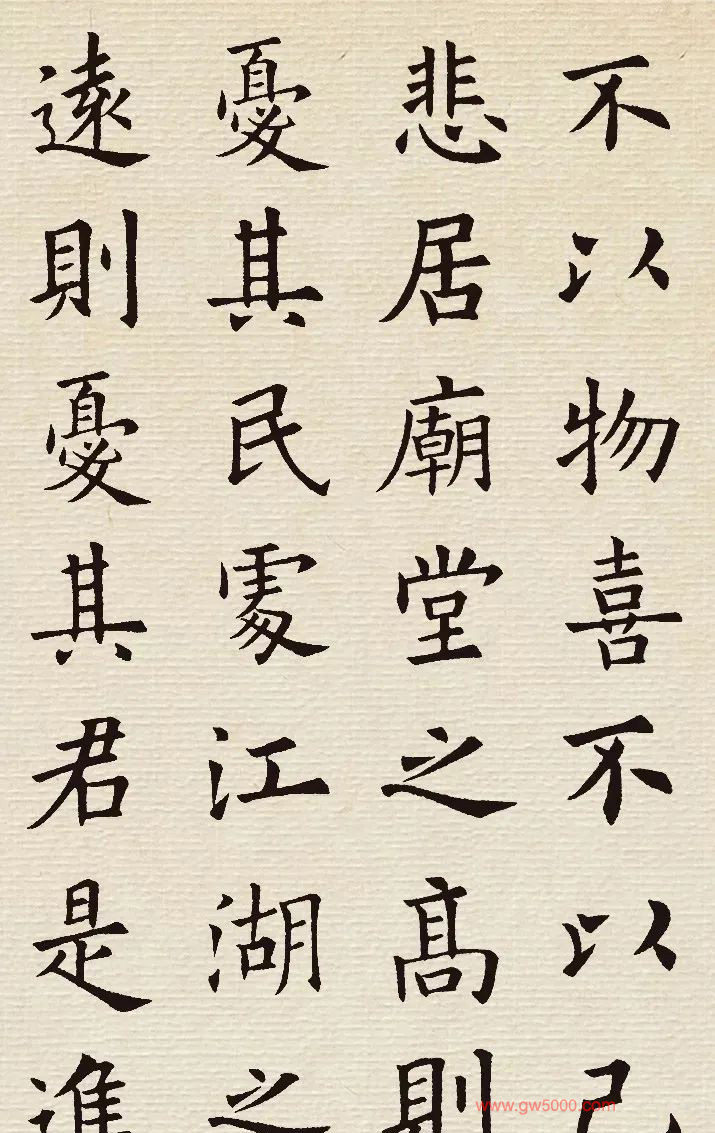 不以物喜不以己
悲居廟堂之髙則
憂其民處江湖之
遠則憂其君是進
www.gw5000.com